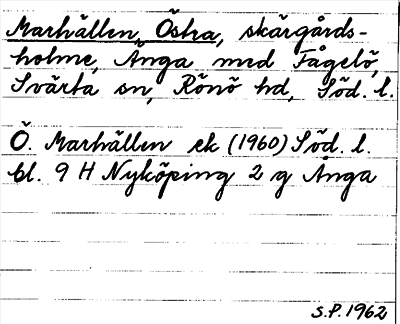 Marhällen, Östra, skärgårds-
holme, Ånga med Fågelö,
Svärta sn, Rönö hd, Söd. l.
Ö. Marhällen ek (1960) Söd. l.
bl. 9 H Nyköping 2 g Ånga
S.P. 1962